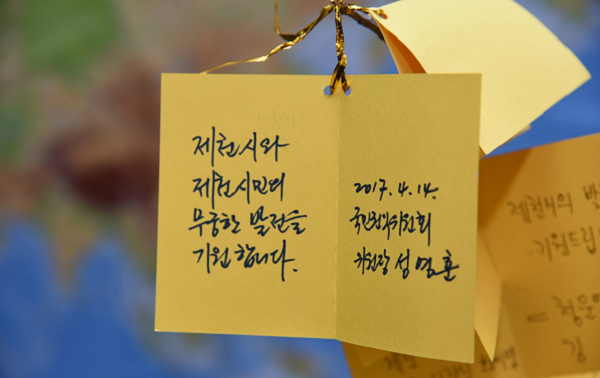 제천시와
제천시민의
무궁한 발전을
기원합니다.
2017. 4. 14.
국민권익위원회
위원장 성영훈
제천시의
기원드립